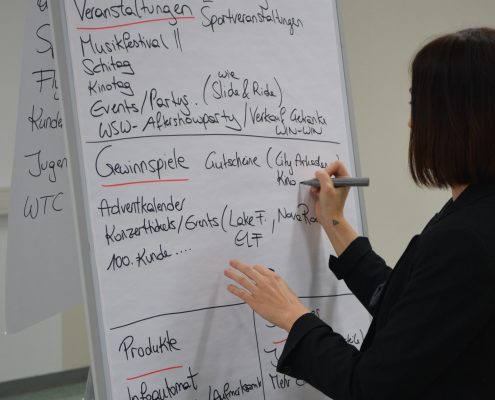 Veranstaltungen
Sportveranstaltungen
Musikfestival !!
Schitag
Kinotag
Events/Partys.. (wie Slide & Ride)
WSW-Aftershowparty/Verkauf Getränke
WIN-WIN
Gewinnspiele Gutscheine (City Arkaden)
Kino
Adventkalender
Konzerttickets/Events (Lake F., Nova Ro
ELF
100. Kunde ....
Produkte
Infoautomat
Mehr
Kunde
Jugen
WTC